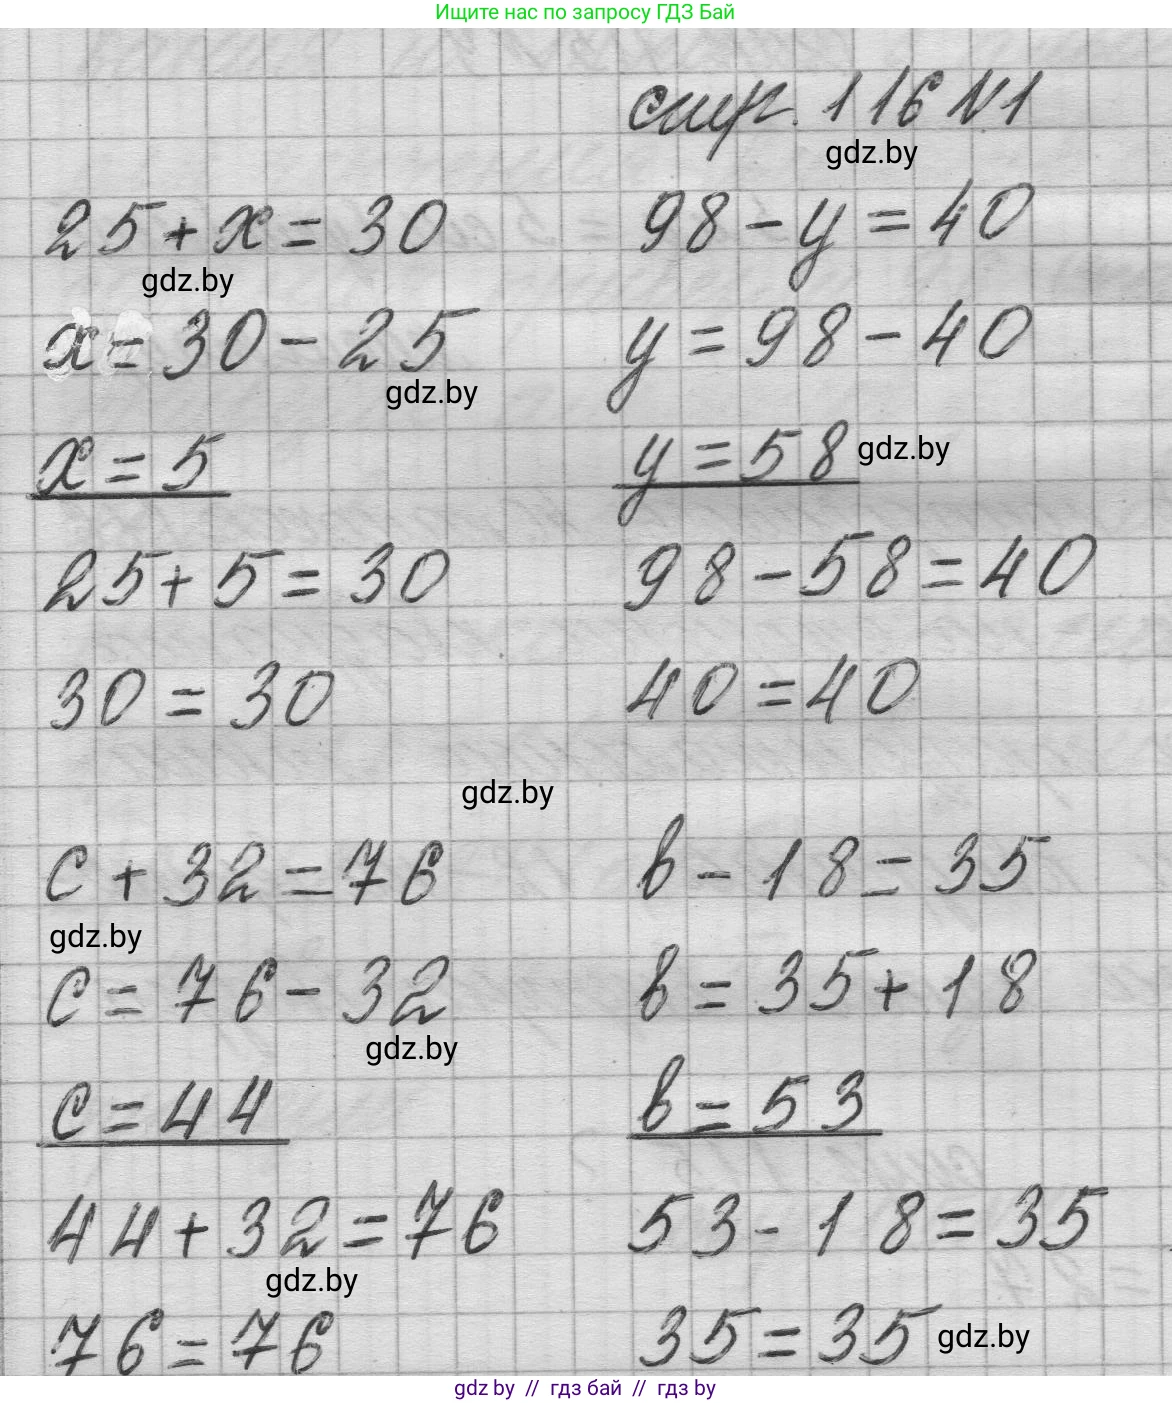 Ищите нас по запросу ГДЗ Бай
стр. 116 №1
gdz.by
25+x=30
gdz.by
x=30-25
gdz.by
x=5
25+5=30
30=30
98-y=40
y=98-40
y=58
gdz.by
98-58=40
40=40
gdz.by
c+32=76
gdz.by
c=76-32
gdz.by
c=44
44+32=76
gdz.by
76=76
в-18=35
в=35+18
в=53
53-18=35
35=35
gdz.by
gdz by // гдз бай // gdz by